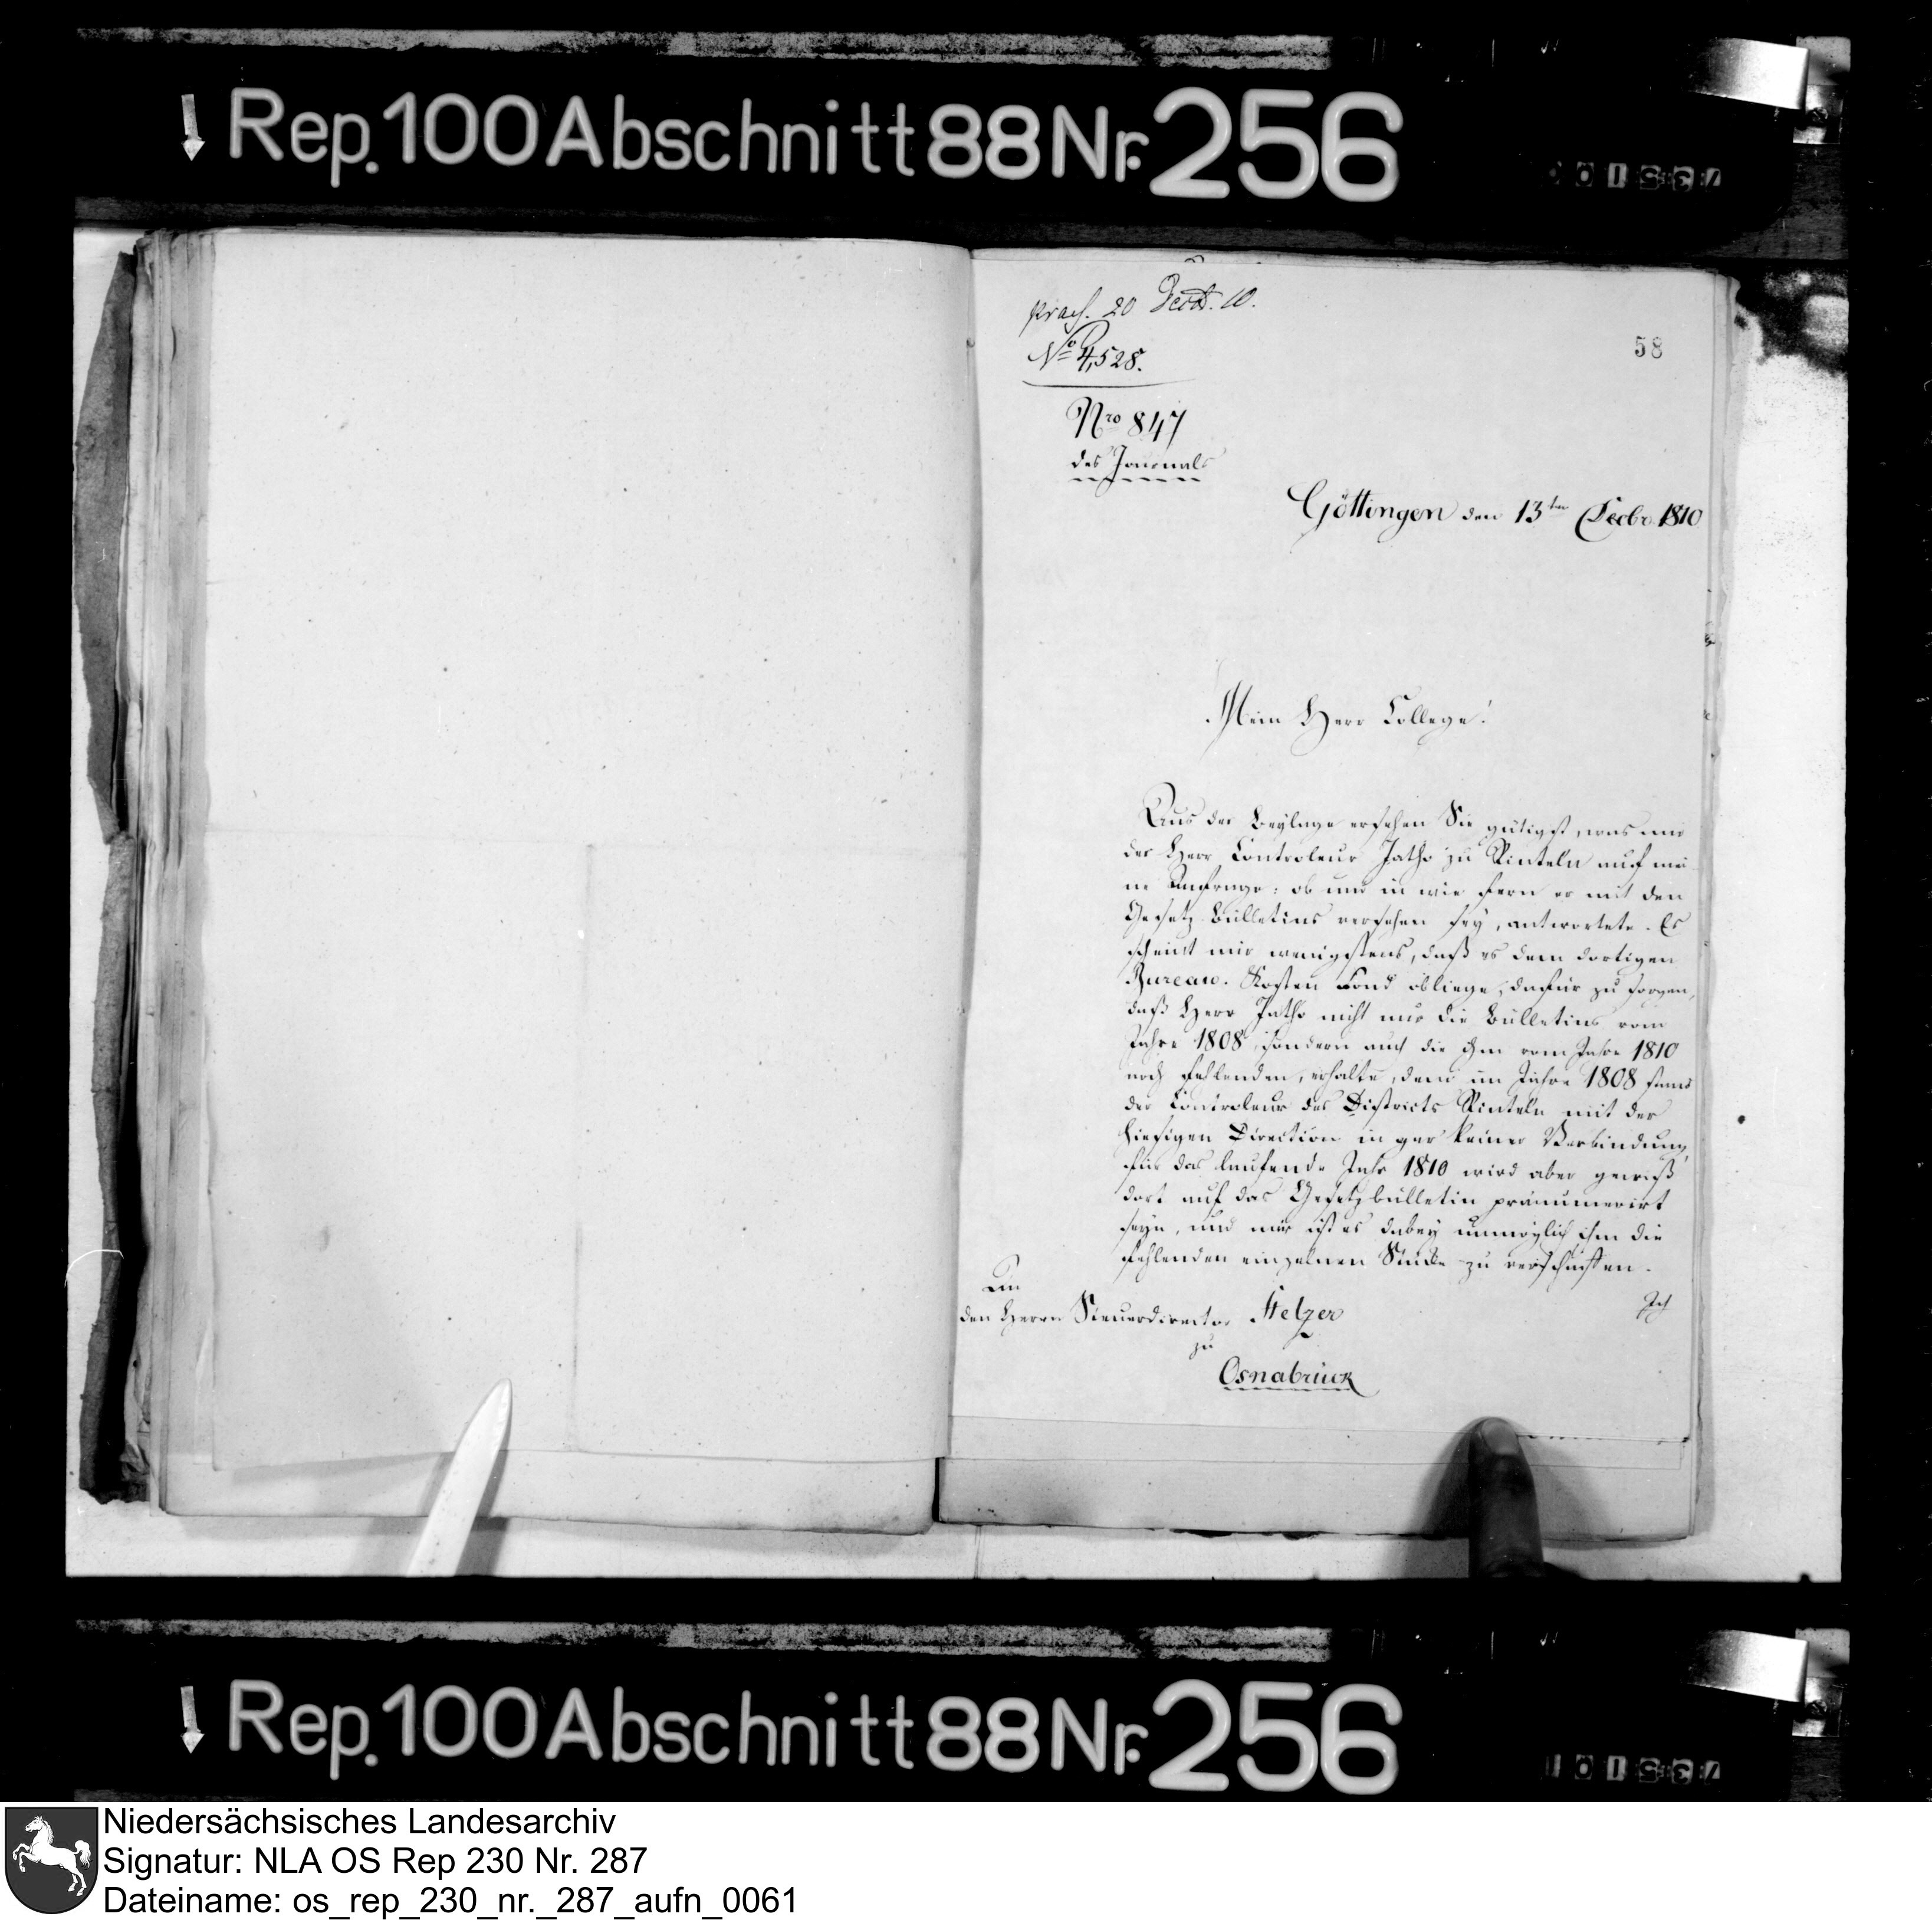 Rep. 100 Abschnitt 88 Nr. 256
praes. 20 Decbr. 10.
No 4,528.
58
Nro 847
des Journals
Göttingen den 13ten Decbr. 1810
Mein Herr College!
Aus der Beylage ersehen Sie gütigst, was mir
der Herr Controleur Jatho zu Rinteln auf mei-
ne Anfrage: ob und in wie fern er mit den
Gesetz-Bulletins versehen sey, antwortete. Es
scheint mir wenigstens, daß es dem dortigen
Bureau-Kosten Fond obliege, dafür zu sorgen,
daß Herr Jatho nicht nur die Bulletins vom
Jahre 1808 sondern auch die ihm vom Jahre 1810
noch fehlenden, erhalte, denn im Jahre 1808 stand
der Controleur des Districts Rinteln mit der
hiesigen Direction in gar keiner Verbindung,
für das laufende Jahr 1810 wird aber gewiß
dort auf das Gesetzbulletin pränumerirt
seyn, und mir ist es dabey unmöglich ihm die
fehlenden einzelnen Stücke zu verschaffen.
Ich
An
den Herrn Steuerdirector Stelzer
zu
Osnabrück
Rep. 100 Abschnitt 88 Nr. 256
Niedersächsisches Landesarchiv
Signatur: NLA OS Rep 230 Nr. 287
Dateiname: os_rep_230_nr._287_aufn_0061